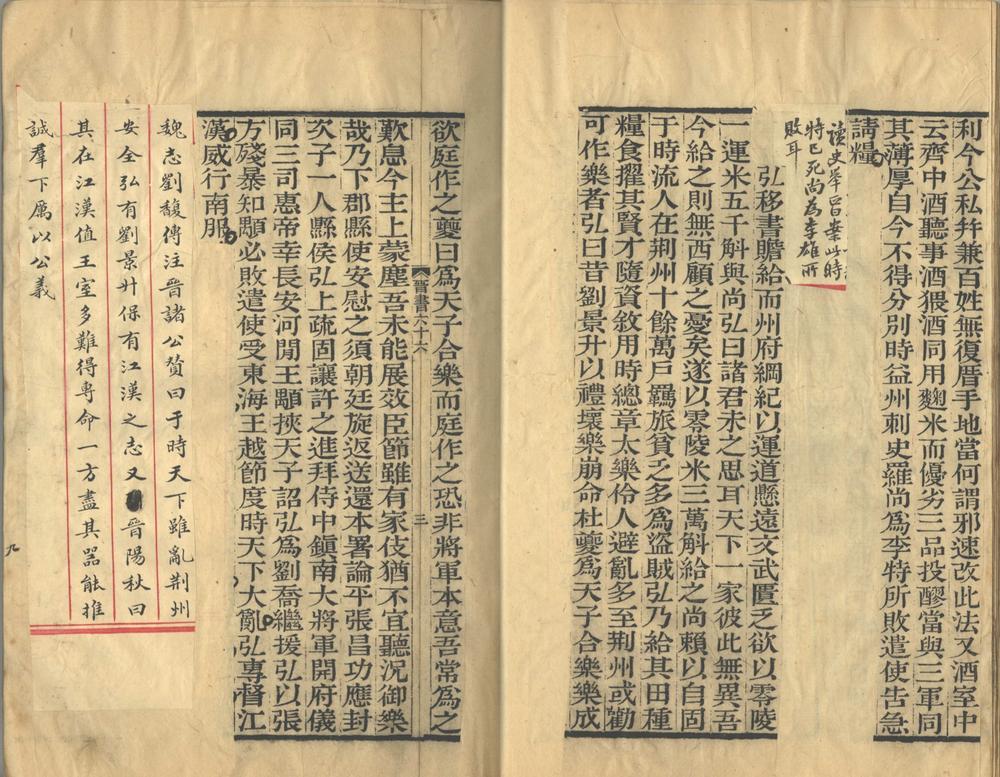 利今公私幷兼百姓無復厝手地當何謂邪速改此法又酒室中
云齊中酒聽事酒猥酒同用麴米而優劣三品投醪當與三軍同
其薄厚自今不得分別時益州刺史羅尚爲李特所敗遣使告急
請糧
讀史舉正曰案此時
特已死尚為李雄所
敗耳
弘移書贍給而州府綱紀以運道懸遠文武匱乏欲以零陵
一運米五千斛與尚弘曰諸君未之思耳天下一家彼此無異吾
今給之則無西顧之憂矣遂以零陵米三萬斛給之尚賴以自固
于時流人在荆州十餘萬戸羈旅貧乏多爲盜賊弘乃給其田種
糧食擢其賢才隨資敘用時總章太樂伶人避亂多至荆州或勸
可作樂者弘曰昔劉景升以禮壞樂崩命杜夔爲天子合樂樂成
晉書六十六
三
欲庭作之夔曰爲天子合樂而庭作之恐非將軍本意吾常爲之
歎息今主上蒙塵吾未能展效臣節雖有家伎猶不宜聽況御樂
哉乃下郡縣使安慰之須朝廷旋返送還本署論平張昌功應封
次子一人縣侯弘上疏固讓許之進拜侍中鎭南大將軍開府儀
同三司惠帝幸長安河閒王顒挾天子詔弘爲劉喬繼援弘以張
方殘暴知顒必敗遣使受東海王越節度時天下大亂弘專督江
漢威行南服
魏志劉馥傳注晉諸公贊曰于時天下雖亂荆州
安全弘有劉景升保有江漢之志又晉陽秋曰
其在江漢值王室多難得專命一方盡其器能推
誠羣下厲以公義
九